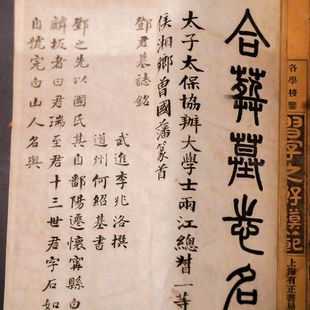 各學校鑒
習字之好模範
上海有正書局
合葬墓志名
太子太保協辦大學士兩江總督一等
侯湘鄉曾國藩篆首
鄧君墓誌銘
武進李兆洛撰
道州何紹基書
鄧之先以國氏其自鄱陽遷懷寧縣白
麟坂者曰君瑞至君十三世君字石如
自號完白山人名與